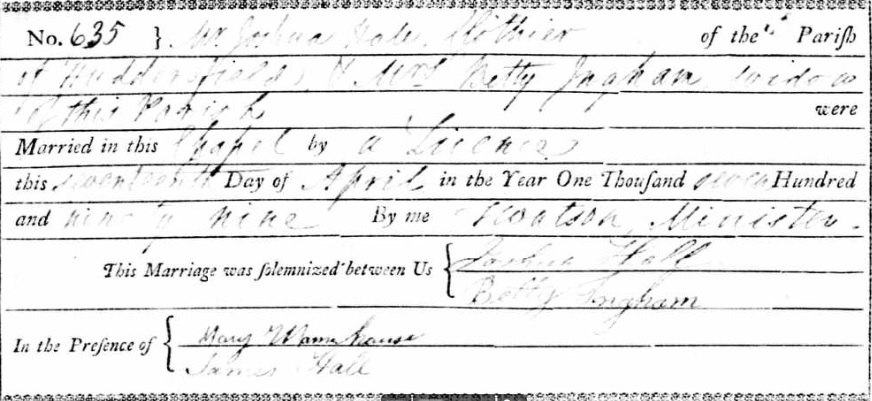 No. 635 } Mr Joshua Hall, Clothier of the Parish
of Huddersfield, & Mrs Betty Ingham, widow
of this Parish were
Married in this Chapel by a Licence
this seventeenth Day of April in the Year One Thousand seven Hundred
and ninety nine By me Watson, Minister.
This Marriage was solemnized between Us { Joshua Hall
Betty Ingham
In the Presence of { Mary
James Hall